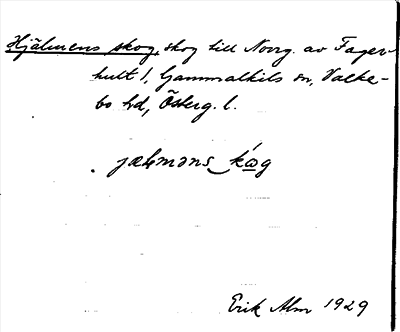 Hjälmens skog, skog till Norrg. av Fager-
hult 1, Gammalkils sn, Valke-
bo hd, Österg. l.
jælməns_
Erik Alm 1929